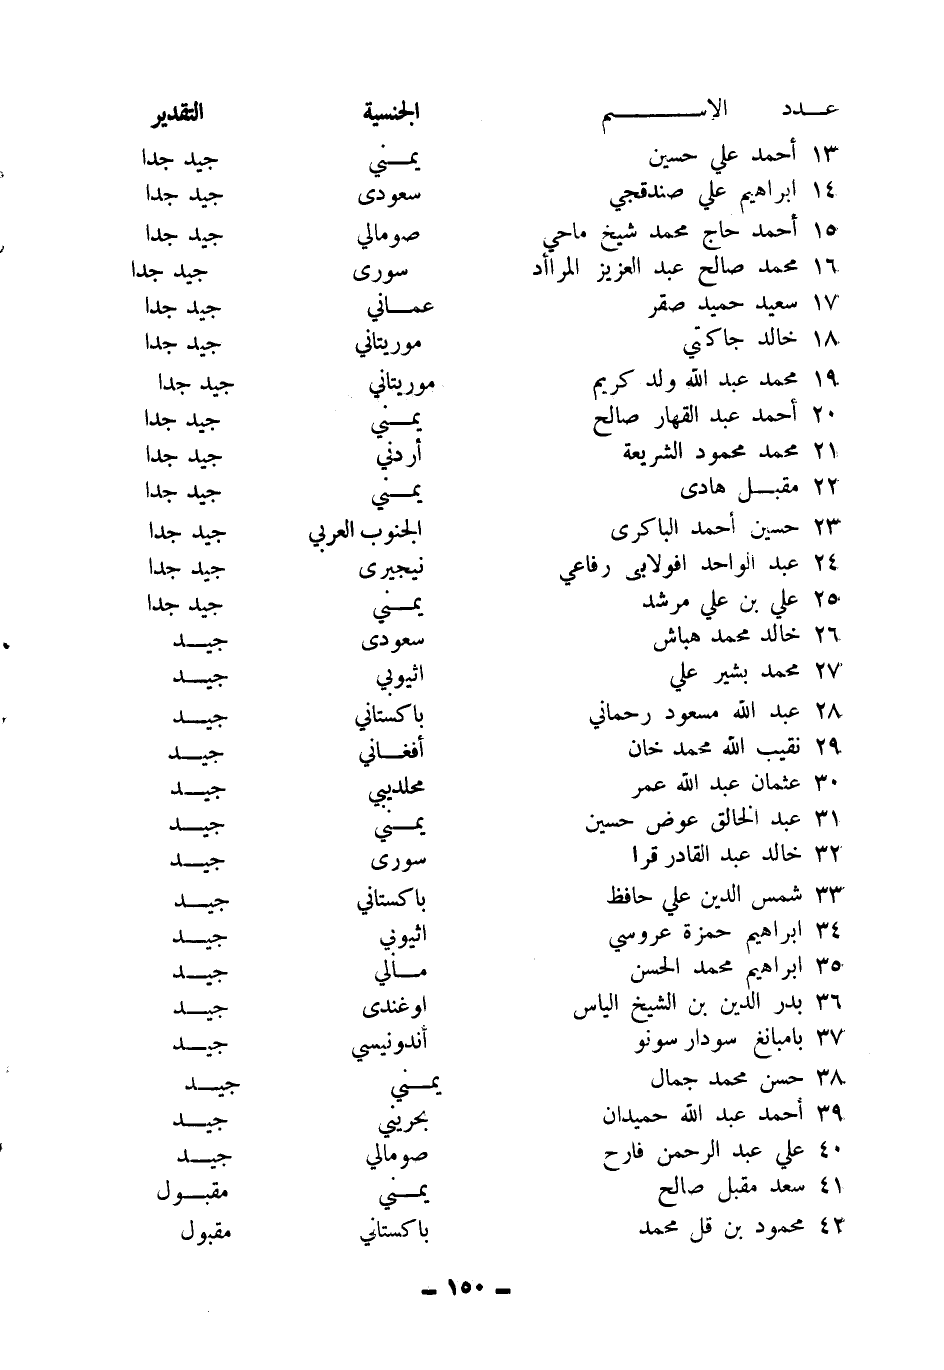 عــدد الإســـــــم الجنسية التقدير
١٣ أحمد علي حسين يمــني جيد جدا
١٤ ابراهيم علي صندقجي سعودى جيد جدا
١٥ أحمد حاج محمد شيخ ماحي صومالي جيد جدا
١٦ محمد صالح عبد العزيز المراأد سورى جيد جدا
١٧ سعيد حميد صقر عمــاني جيد جدا
١٨ خالد جاكتي موريتاني جيد جدا
١٩ محمد عبد الله ولد كريم موريتاني جيد جدا
٢٠ أحمد عبد القهار صالح يمــني جيد جدا
٢١ محمد محمود الشريعة أردني جيد جدا
٢٢ مقبــل هادى يمــني جيد جدا
٢٣ حسين أحمد الباكرى الجنوب العربي جيد جدا
٢٤ عبد الواحد افولابى رفاعي نيجيرى جيد جدا
٢٥ علي بن علي مرشد يمــني جيد جدا
٢٦ خالد محمد هباش سعودى جيــد
٢٧ محمد بشير علي اثيوبي جيــد
٢٨ عبد الله مسعود رحماني باكستاني جيــد
٢٩ نقيب الله محمد خان أفغــاني جيــد
٣٠ عثمان عبد الله عمر محلديبي جيــد
٣١ عبد الخالق عوض حسين يمــني جيــد
٣٢ خالد عبد القادر قرا سورى جيــد
٣٣ شمس الدين علي حافظ باكستاني جيــد
٣٤ ابراهيم حمزة عروسي اثيوني جيــد
٣٥ ابراهيم محمد الحسن مــالي جيــد
٣٦ بدر الدين بن الشيخ الياس اوغندى جيــد
٣٧ بامبانغ سودار سونو أندونيسي جيــد
٣٨ حسن محمد جمال يمــني جيــد
٣٩ أحمد عبد الله حميدان بحريني جيــد
٤٠ علي عبد الرحمن فارح صومالي جيــد
٤١ سعد مقبل صالح يمــني مقبــول
٤٢ محمود بن قل محمد باكستاني مقبول
ـ ١٥٠ ـ